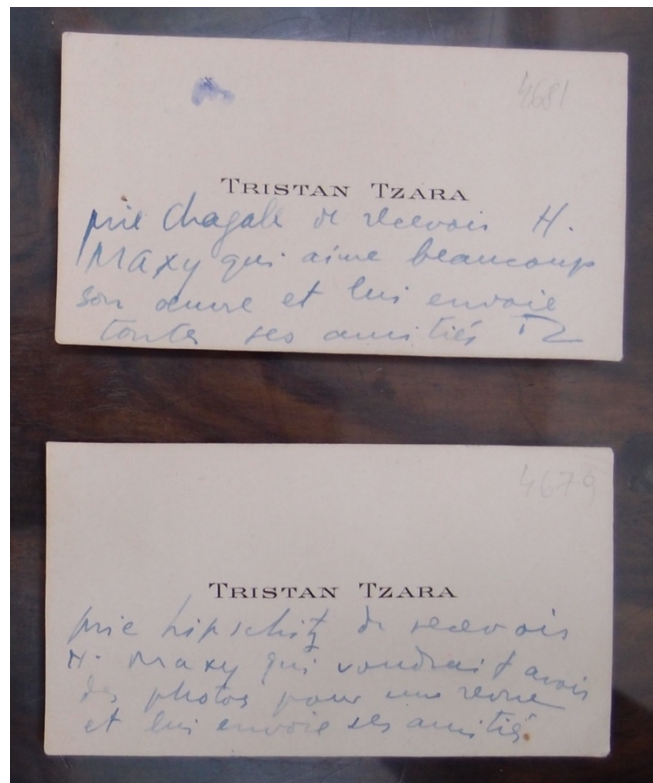 4681
TRISTAN TZARA
prie Chagale de recevoir H.
Maxy qui aime beaucoup
son œuvre et lui envoie
toutes ses amitiés TZ
4679
TRISTAN TZARA
prie Lipschitz de recevoir
H. Maxy qui voudrait avoir
des photos pour une revue
et lui envoie ses amitiés.